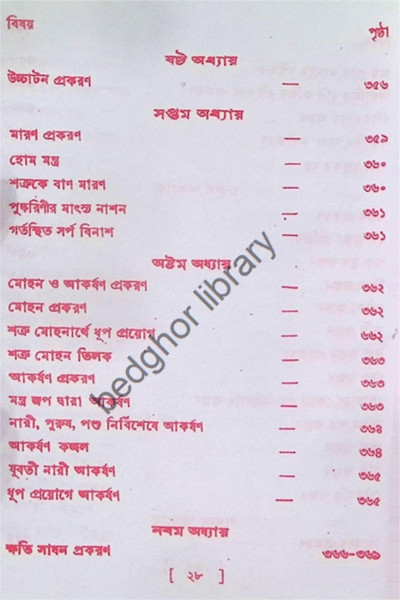 বিষয় পৃষ্ঠা
ষষ্ঠ অধ্যায়
উচ্চাটন প্রকরণ — ৩৫৬
সপ্তম অধ্যায়
মারণ প্রকরণ — ৩৫৯
হোম মন্ত্র — ৩৬০
শত্রুকে বাণ মারণ — ৩৬০
পুষ্করিণীর মাৎস্য নাশন — ৩৬১
গর্তস্থিত সর্প বিনাশ — ৩৬১
অষ্টম অধ্যায়
মোহন ও আকর্ষণ প্রকরণ — ৩৬২
মোহন প্রকরণ — ৩৬২
শত্রু মোহনার্থে ধূপ প্রয়োগ — ৩৬২
শত্রু মোহন তিলক — ৩৬৩
আকর্ষণ প্রকরণ — ৩৬৩
মন্ত্র জপ দ্বারা আকর্ষণ — ৩৬৩
নারী, পুরুষ, পশু নির্বিশেষে আকর্ষণ — ৩৬৪
আকর্ষণ কজ্জল — ৩৬৪
যুবতী নারী আকর্ষণ — ৩৬৫
ধূপ প্রয়োগে আকর্ষণ — ৩৬৫
নবম অধ্যায়
ক্ষতি সাধন প্রকরণ ৩৬৬-৩৬৯
[ ২৮ ]
bedghor library